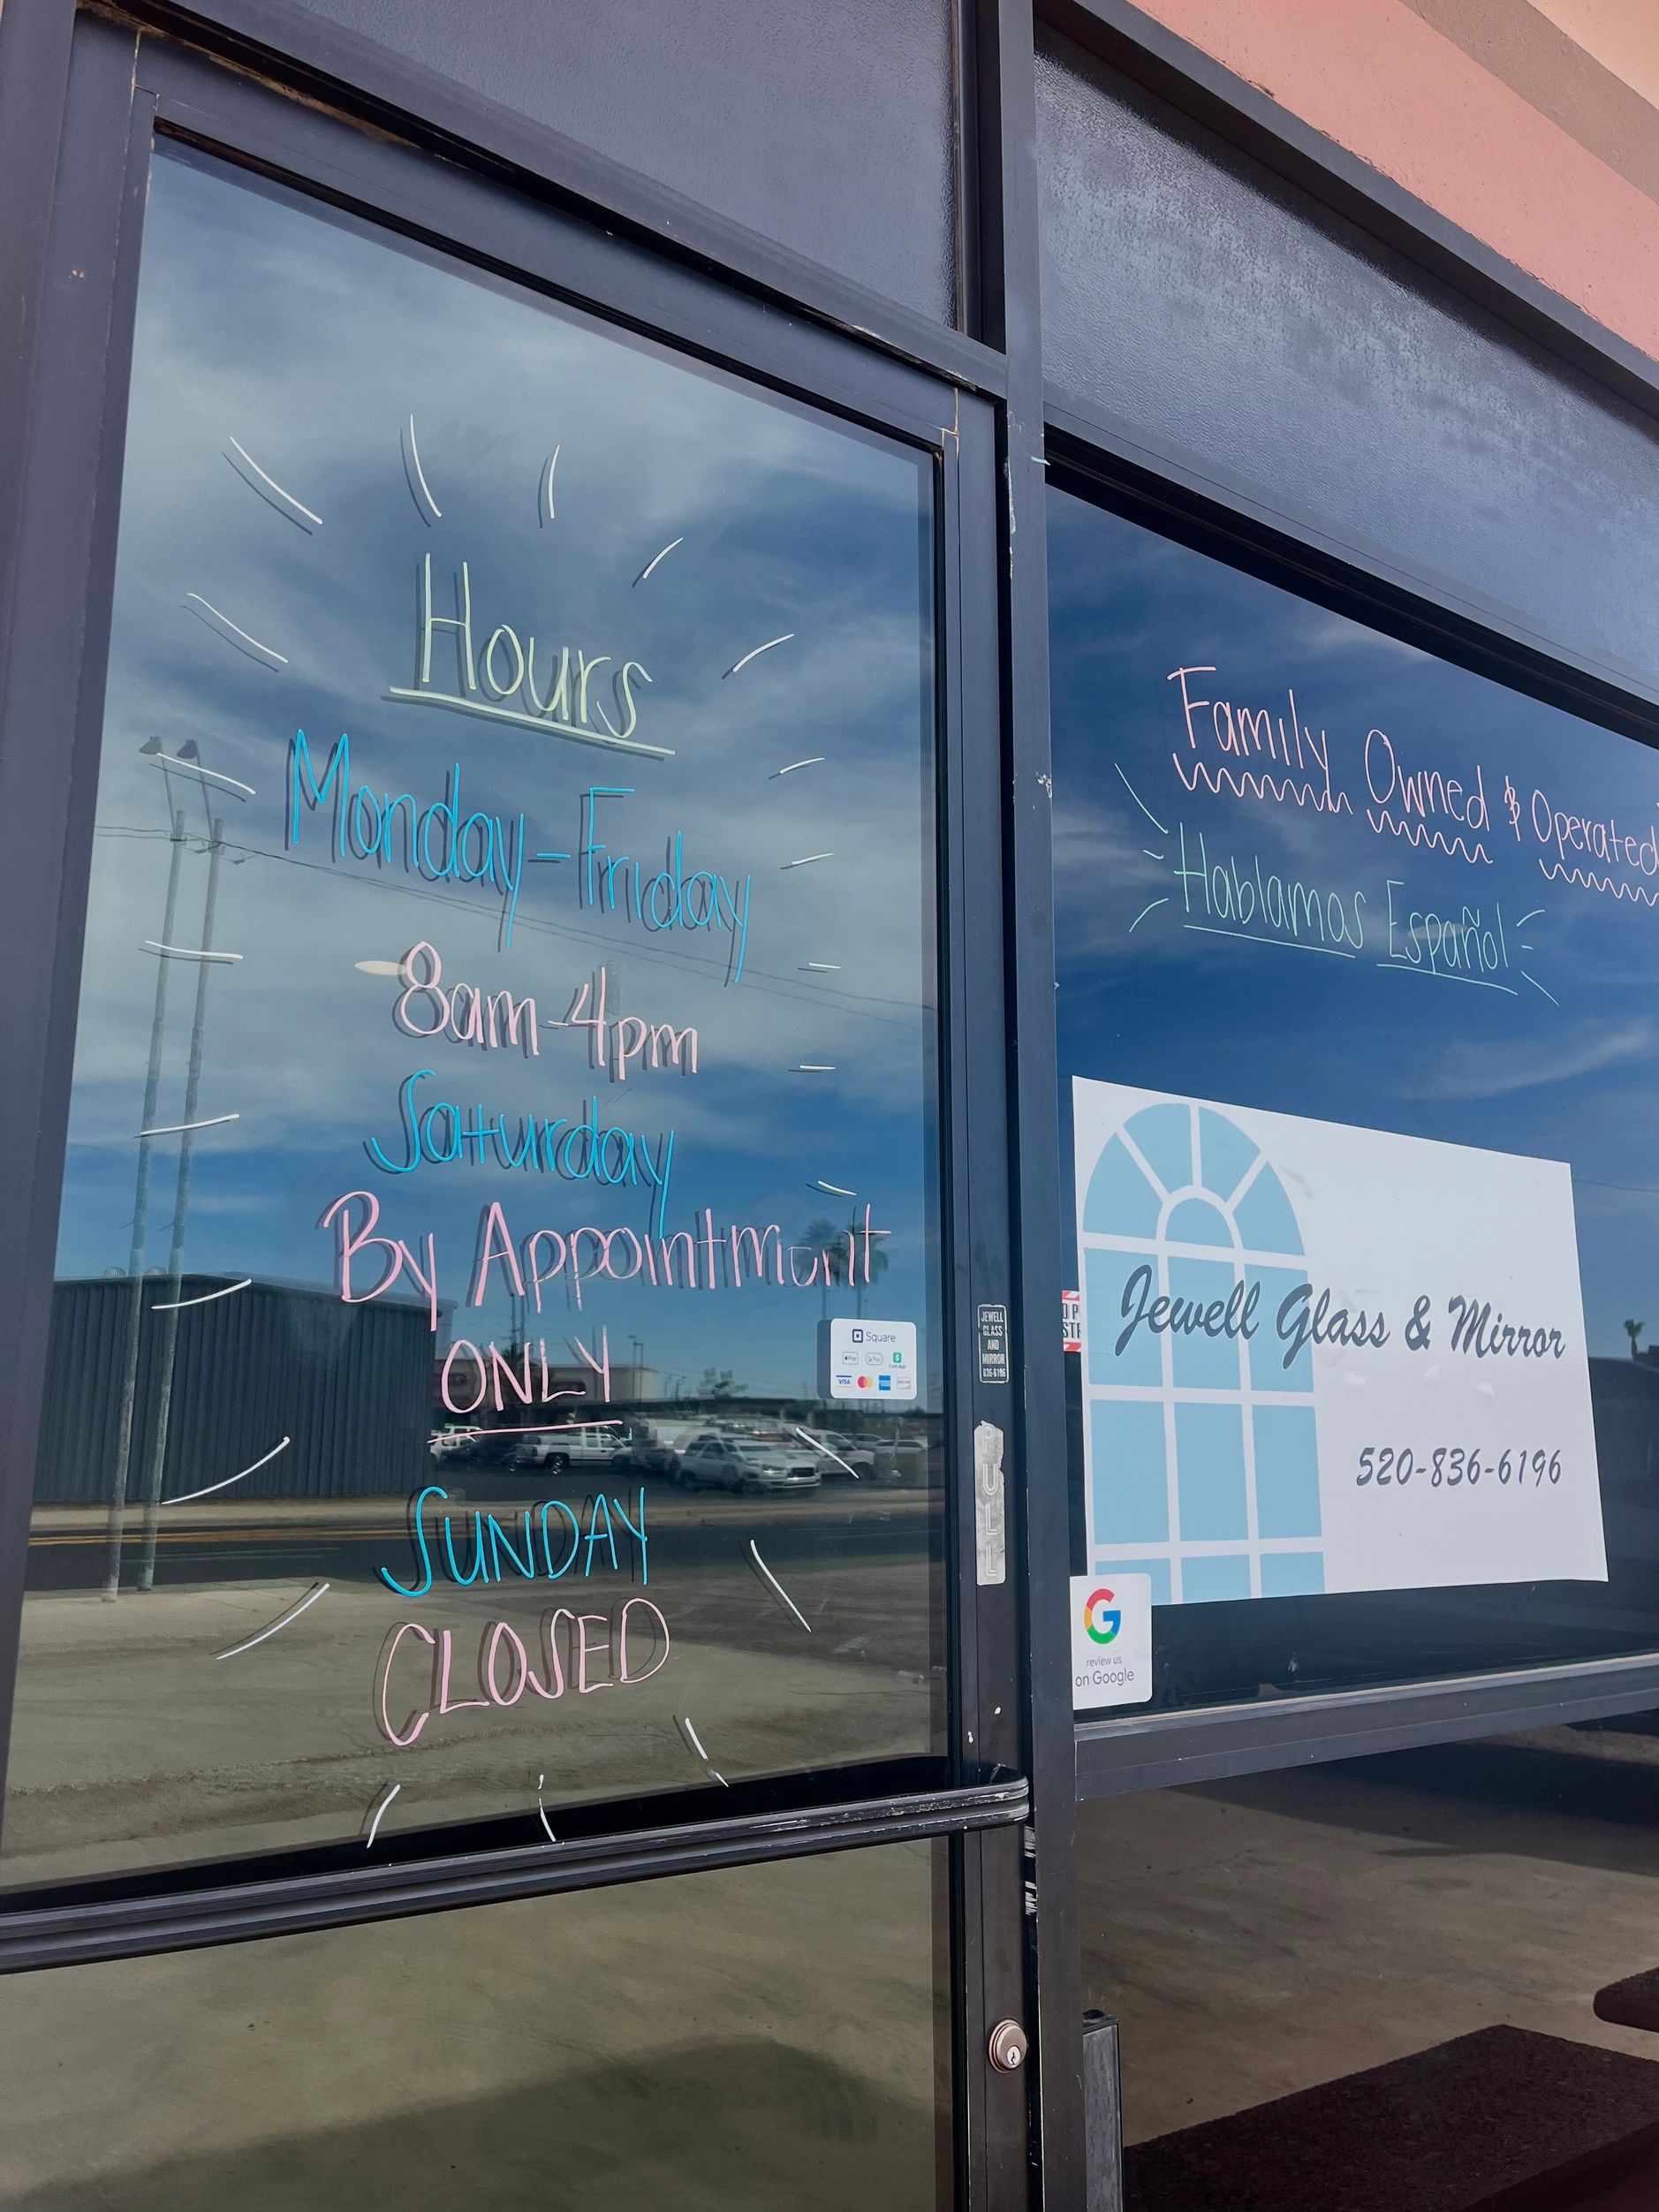 Hours
Monday-Friday
8am-4pm
Saturday
By Appointment
ONLY
SUNDAY
CLOSED
Square
Pay
G Pay
VISA
JEWELL
GLASS
AND
MIRROR
836-6196
PULL
Family Owned & Operated
Hablamos Español
Jewell Glass & Mirror
520-836-6196
G
review us
on Google